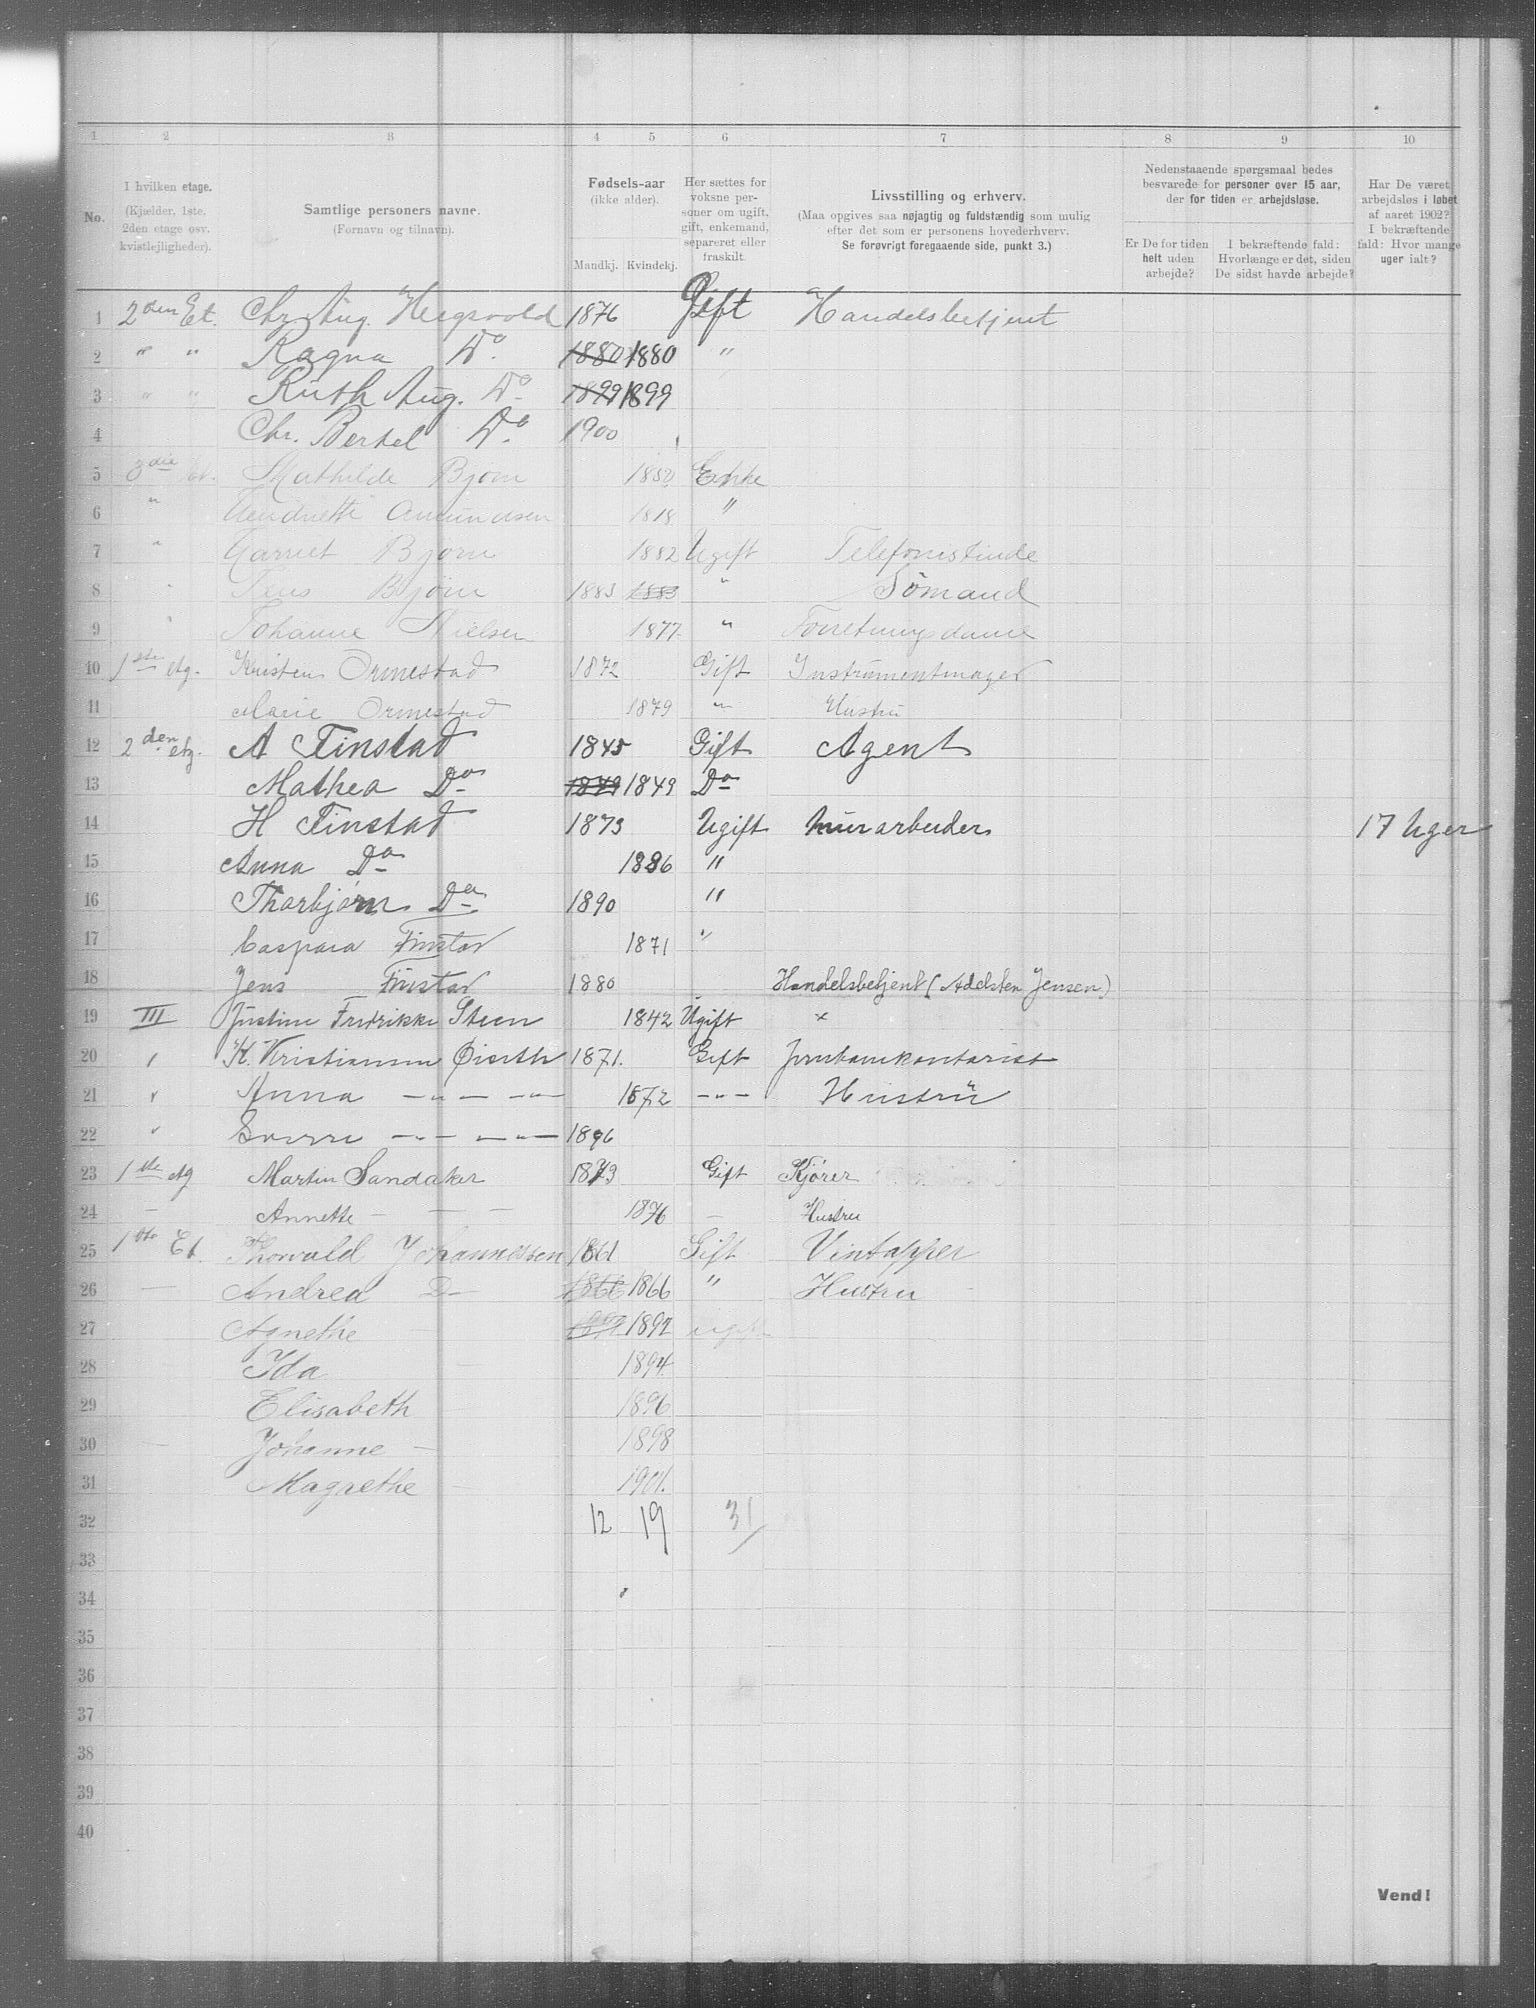 1 2 3 4 5 6 7 8 9 10
No. I hvilken etage. (Kjælder, 1ste, 2den etage osv. kvistlejligheder). Samtlige personers navne. (Fornavn og tilnavn). Fødsels-aar (ikke alder). Mandkj. Kvindekj. Her sættes for voksne personer om ugift, gift, enkemand, separeret eller fraskilt. Livsstilling og erhverv. (Maa opgives saa nøjagtig og fuldstændig som mulig efter det som er personens hovederhverv. Se forøvrigt foregaaende side, punkt 3.) Nedenstaaende spørgsmaal bedes besvarede for personer over 15 aar, der for tiden er arbejdsløse. Er De for tiden helt uden arbejde? I bekræftende fald: Hvorlænge er det, siden De sidst havde arbejde? Har De været arbejdsløs i løbet af aaret 1902? I bekræftende fald: Hvor mange uger ialt?
1 2den Et. Chr. Aug. 1876 Gift Handelsbetjent
2 " " Ragna Do 1880 1880 "
3 " " Ruth Aug. Do 1899 1899
4 Chr. Bertel Do 1900
5 3die Et. Mathilde Bjørn 1850 Enke
6 " Amundsen 1818 "
7 " Harriet Bjørn 1882 Ugift Telefonistinde
8 " Jens Bjørn 1883 1883 " Sömand
9 " Johanne Nielsen 1877 " Forretningsdame
10 1ste etg. Kristen Ormestad 1872 Gift Instrumentmager
11 Marie Ormestad 1879 " Hustru
12 2den etg. A Finstad 1845 Gift Agent
13 Mathea Do 1849 1849 Do
14 H Finstad 1873 Ugift Murarbeider 17 Uger
15 Anna Do 1886 "
16 Thorbjørn Do 1890 "
17 Caspara Finstad 1871 "
18 Jens Finstad 1880 Handelsbetjent (Adelsten Jensen)
19 III Justine Fredrikke Steen 1842 Ugift "
20 " K. Kristiansen 1871. Gift Jernbanekontorist
21 " Anna — " — " — 1872 — " — Hustrü
22 " Sverre — " — — " — 1896
23 1ste etg Martin Sandaker 1873 Gift Kjører
24 — Annette — — — 1876 — Hustru
25 1ste Et. Thorvald Johannessen 1861 Gift Vintapper
26 — Andrea D— 1866 1866 " Hustru
27 Agnethe — 1892 ugift
28 Ida — 1894
29 Elisabeth — 1896
30 — Johanne — 1898
31 Magrethe — 1901.
32 12 19 31
33
34
35
36
37
38
39
40
Vend!